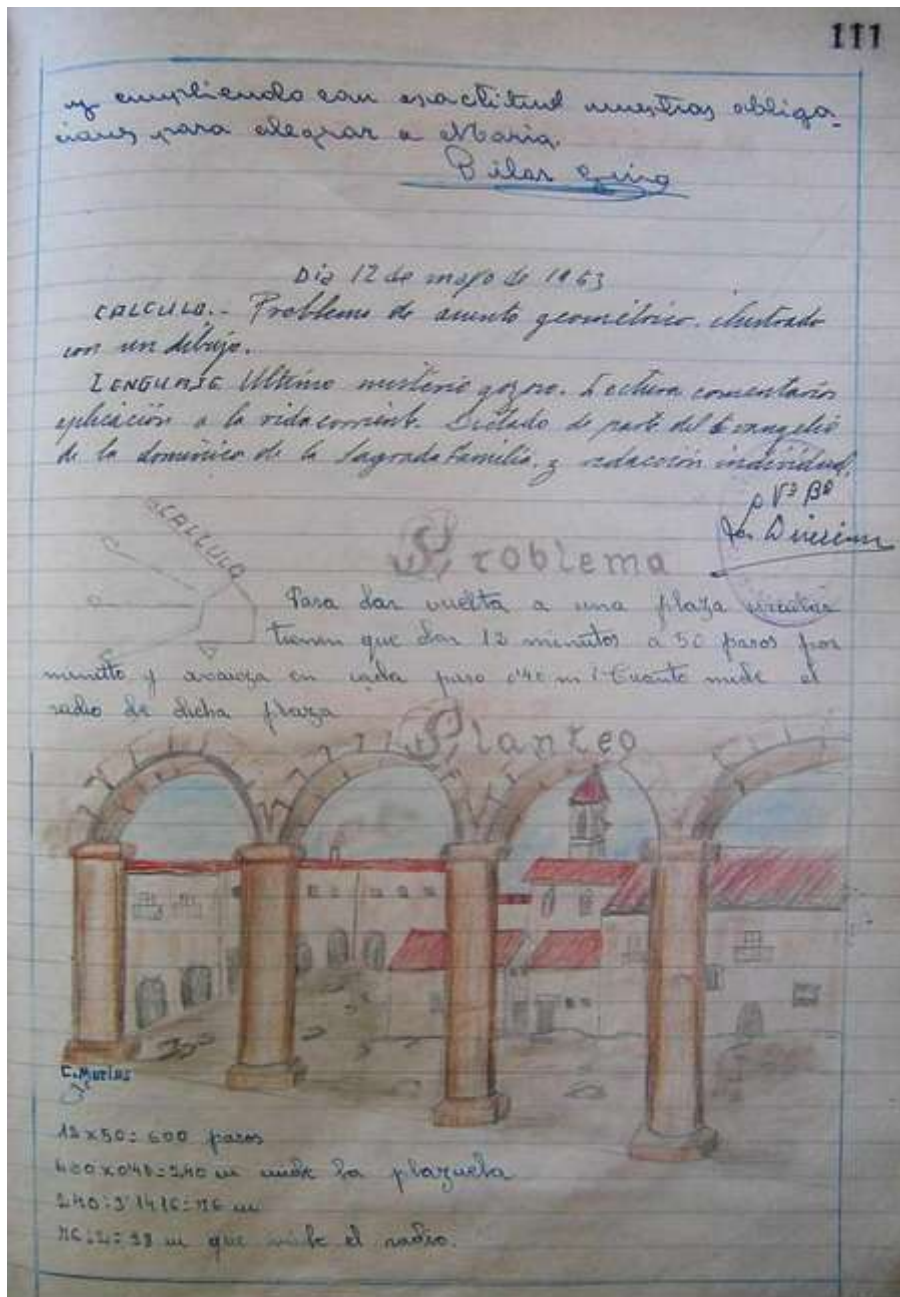 111
y cumpliendo con exactitud nuestras obliga-
ciones para alegrar a Maria.
Pilar
Dia 12 de mayo de 1963
CALCULO.- Problema de asunto geométrico. ilustrado
con un dibujo.
LENGUAJE Ultimo misterio gozoso. Lectura comentario
aplicación a la vida corriente. Dictado de parte del Evangelio
de la dominica de la Sagrada Familia. y redacción individual.
Vº Bº
CALCULO
Problema
Para dar vuelta a una plaza circular
tienen que dar 12 minutos a 50 pasos por
minutto y avanza en cada paso 0'40 m ¿Cuanto mide el
radio de dicha plaza
Planteo
C. Murias
12x50=600 pasos
600x0'40=240 m mide la plazuela
240:3'1416=76 m
76:2=38 m que mide el radio.